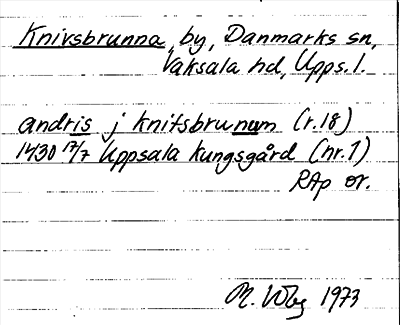 Knivsbrunna, by, Danmarks sn,
Vaksala hd, Upps. l.
andris j knifsbrunum (r. 18)
1430 17/7 Uppsala kungsgård (nr. 1)
RAp or.
M. Wbg 1973